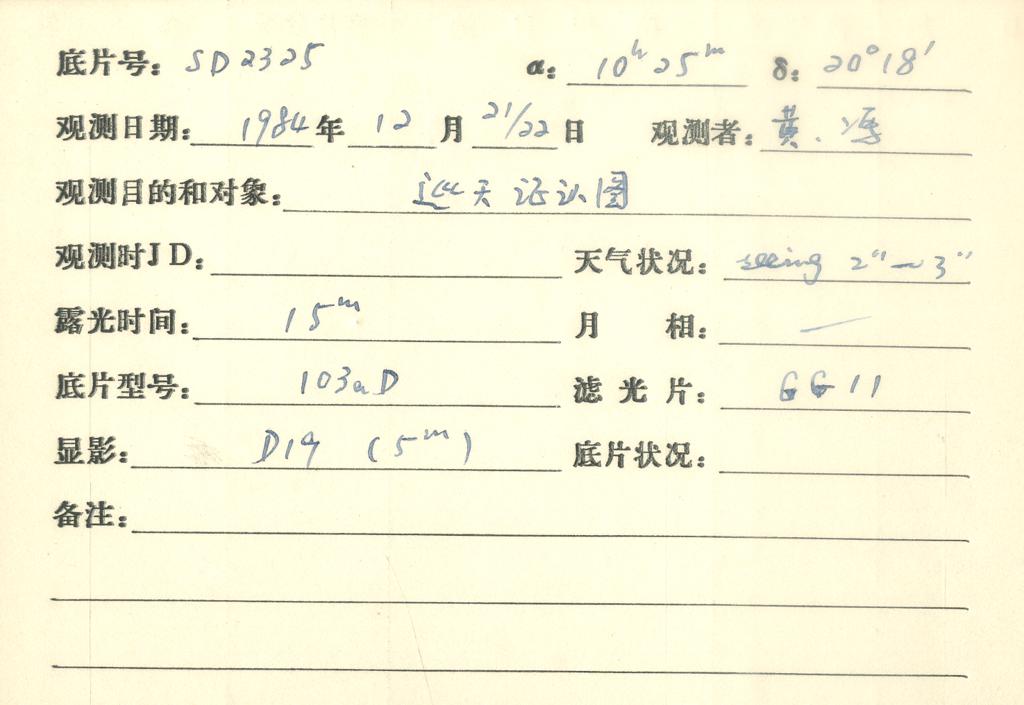 底片号: SD2325 α: 10ʰ25ᵐ δ: 20°18′
观测日期: 1984年 12月 21/22日 观测者: 黄、冯
观测目的和对象: 巡天证认图
观测时JD: 天气状况: seeing 2″—3″
露光时间: 15ᵐ 月 相: —
底片型号: 103aD 滤光片: GG11
显影: D19 (5ᵐ) 底片状况:
备注: